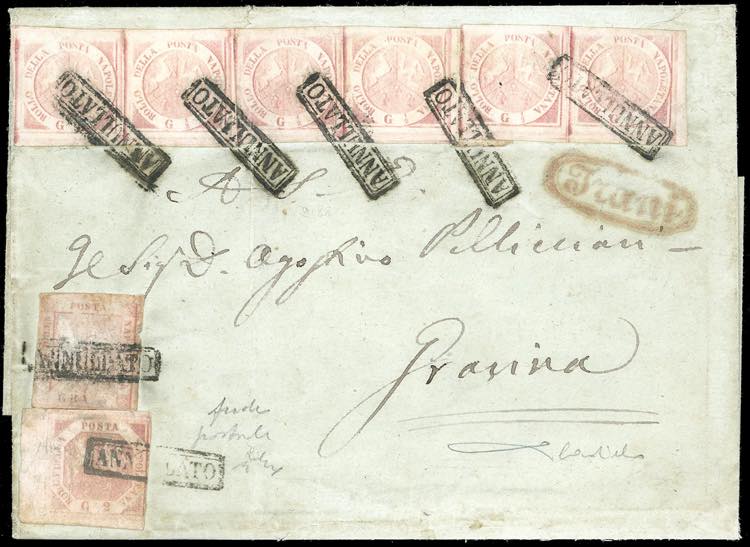 BOLLO DELLA POSTA NAPOLETANA G 1
BOLLO DELLA POSTA NAPOLETANA G 1
BOLLO DELLA POSTA NAPOLETANA G 1
BOLLO DELLA POSTA NAPOLETANA G 1
BOLLO DELLA POSTA NAPOLETANA G 1
BOLLO DELLA POSTA NAPOLETANA G 1
ANNULLATO
ANNULLATO
ANNULLATO
ANNULLATO
ANNULLATO
Trani
A S.
Sig D. Agostino Pelliccian
Gravina
POSTA
ANNULLATO
GRA
POSTA
ANNULLATO
G 2
frode
postale